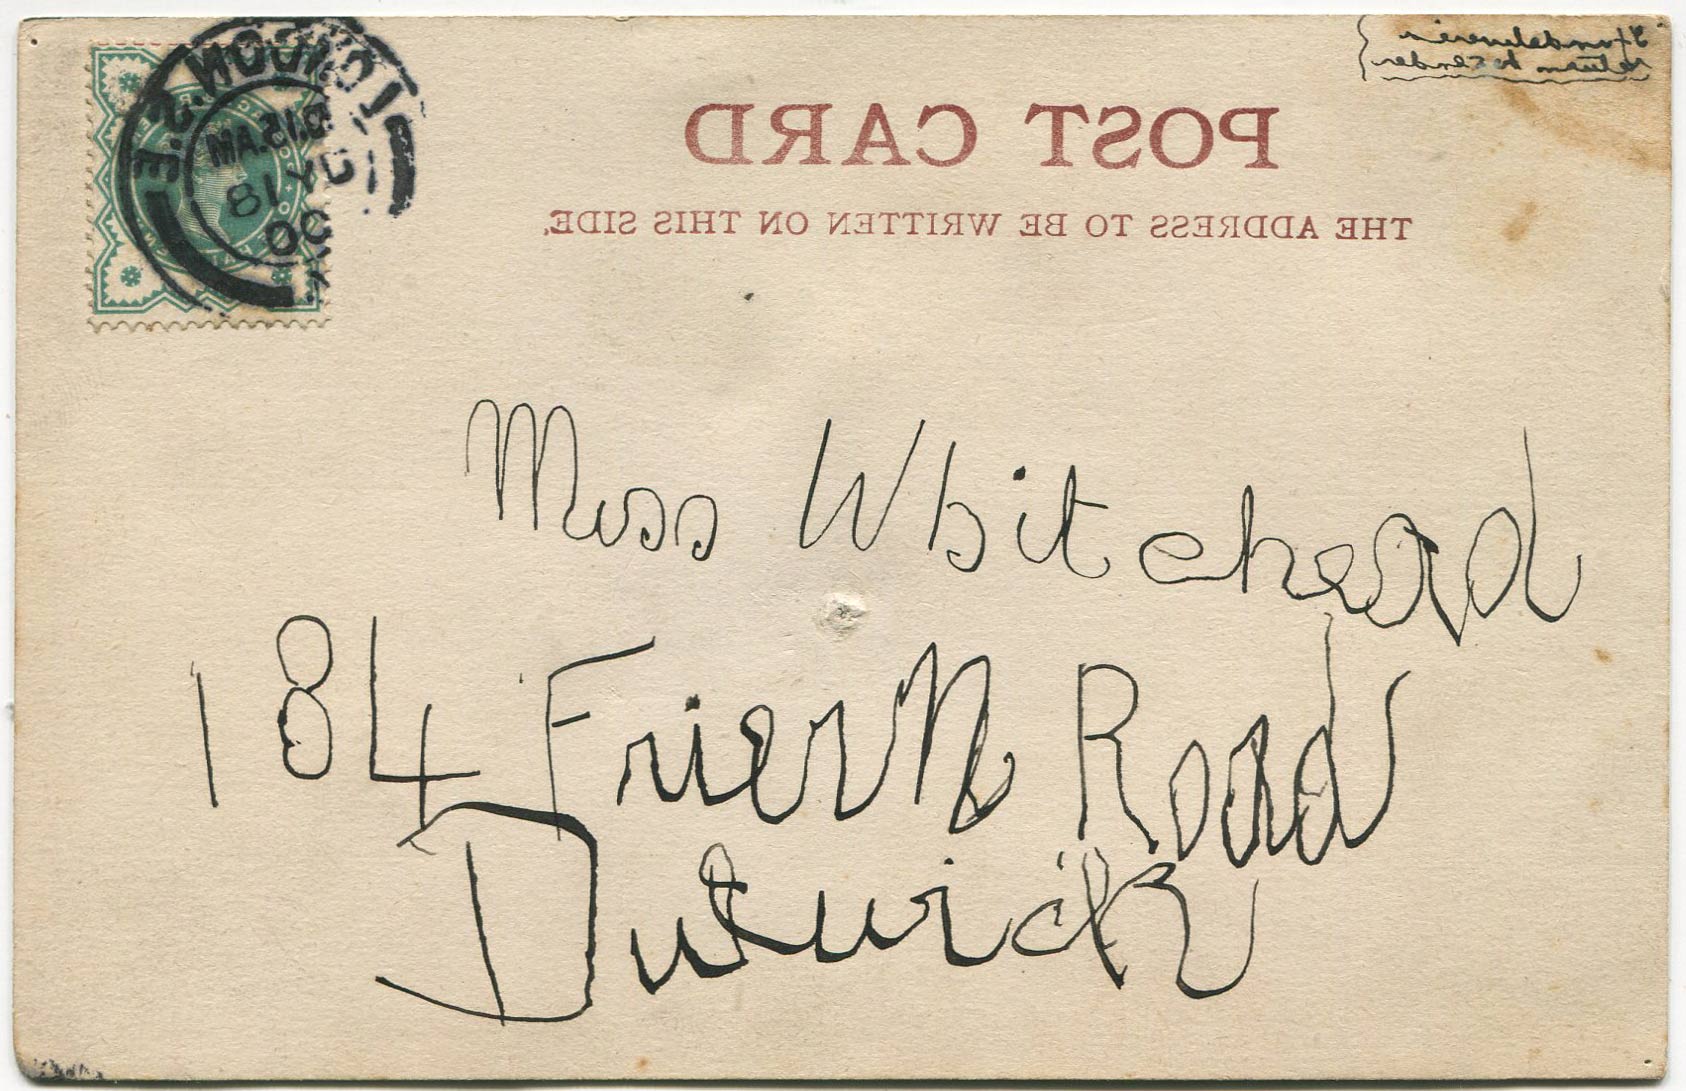 If undelivered
return to sender
POST CARD
THE ADDRESS TO BE WRITTEN ON THIS SIDE.
LONDON. S.E.
JY 18
00
Miss Whitehead
184 Friern Road
Dulwich